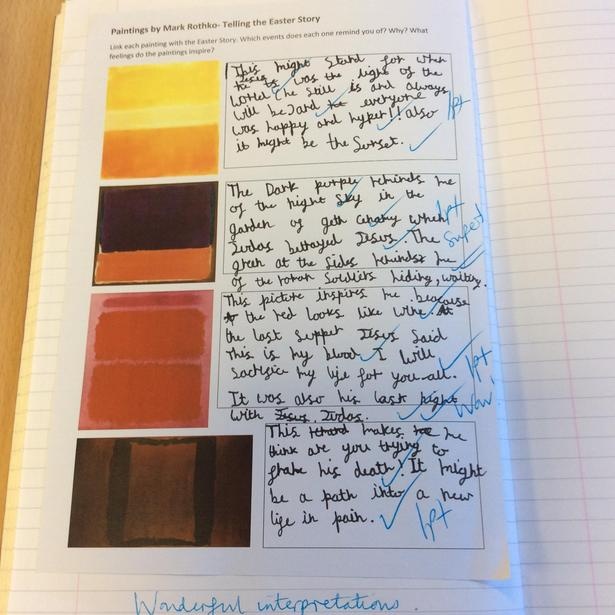 Paintings by Mark Rothko- Telling the Easter Story
Link each painting with the Easter Story. Which events does each one remind you of? Why? What
feelings do the paintings inspire?
This might stand for when
Jesus was the light of the
World (he still is and always
will be) and everyone
was happy and hyper!! Also
it might be the Sunset.
1pt
The Dark purple reminds me
of the night sky in the
garden of geth when
Judas betrayed Jesus. The
green at the sides reminds me
of the roman Soldiers hiding, waiting.
1pt
Super!
This picture inspires me because
the red looks like wine. At
the last supper Jesus said
This is my blood I will
sacrifice my life for you-all.
It was also his last night
with Jesus, Judas.
1pt
Wow!
This makes me
think are you trying to
his death! It might
be a path into a new
life in pain.
1pt
Wonderful interpretations.